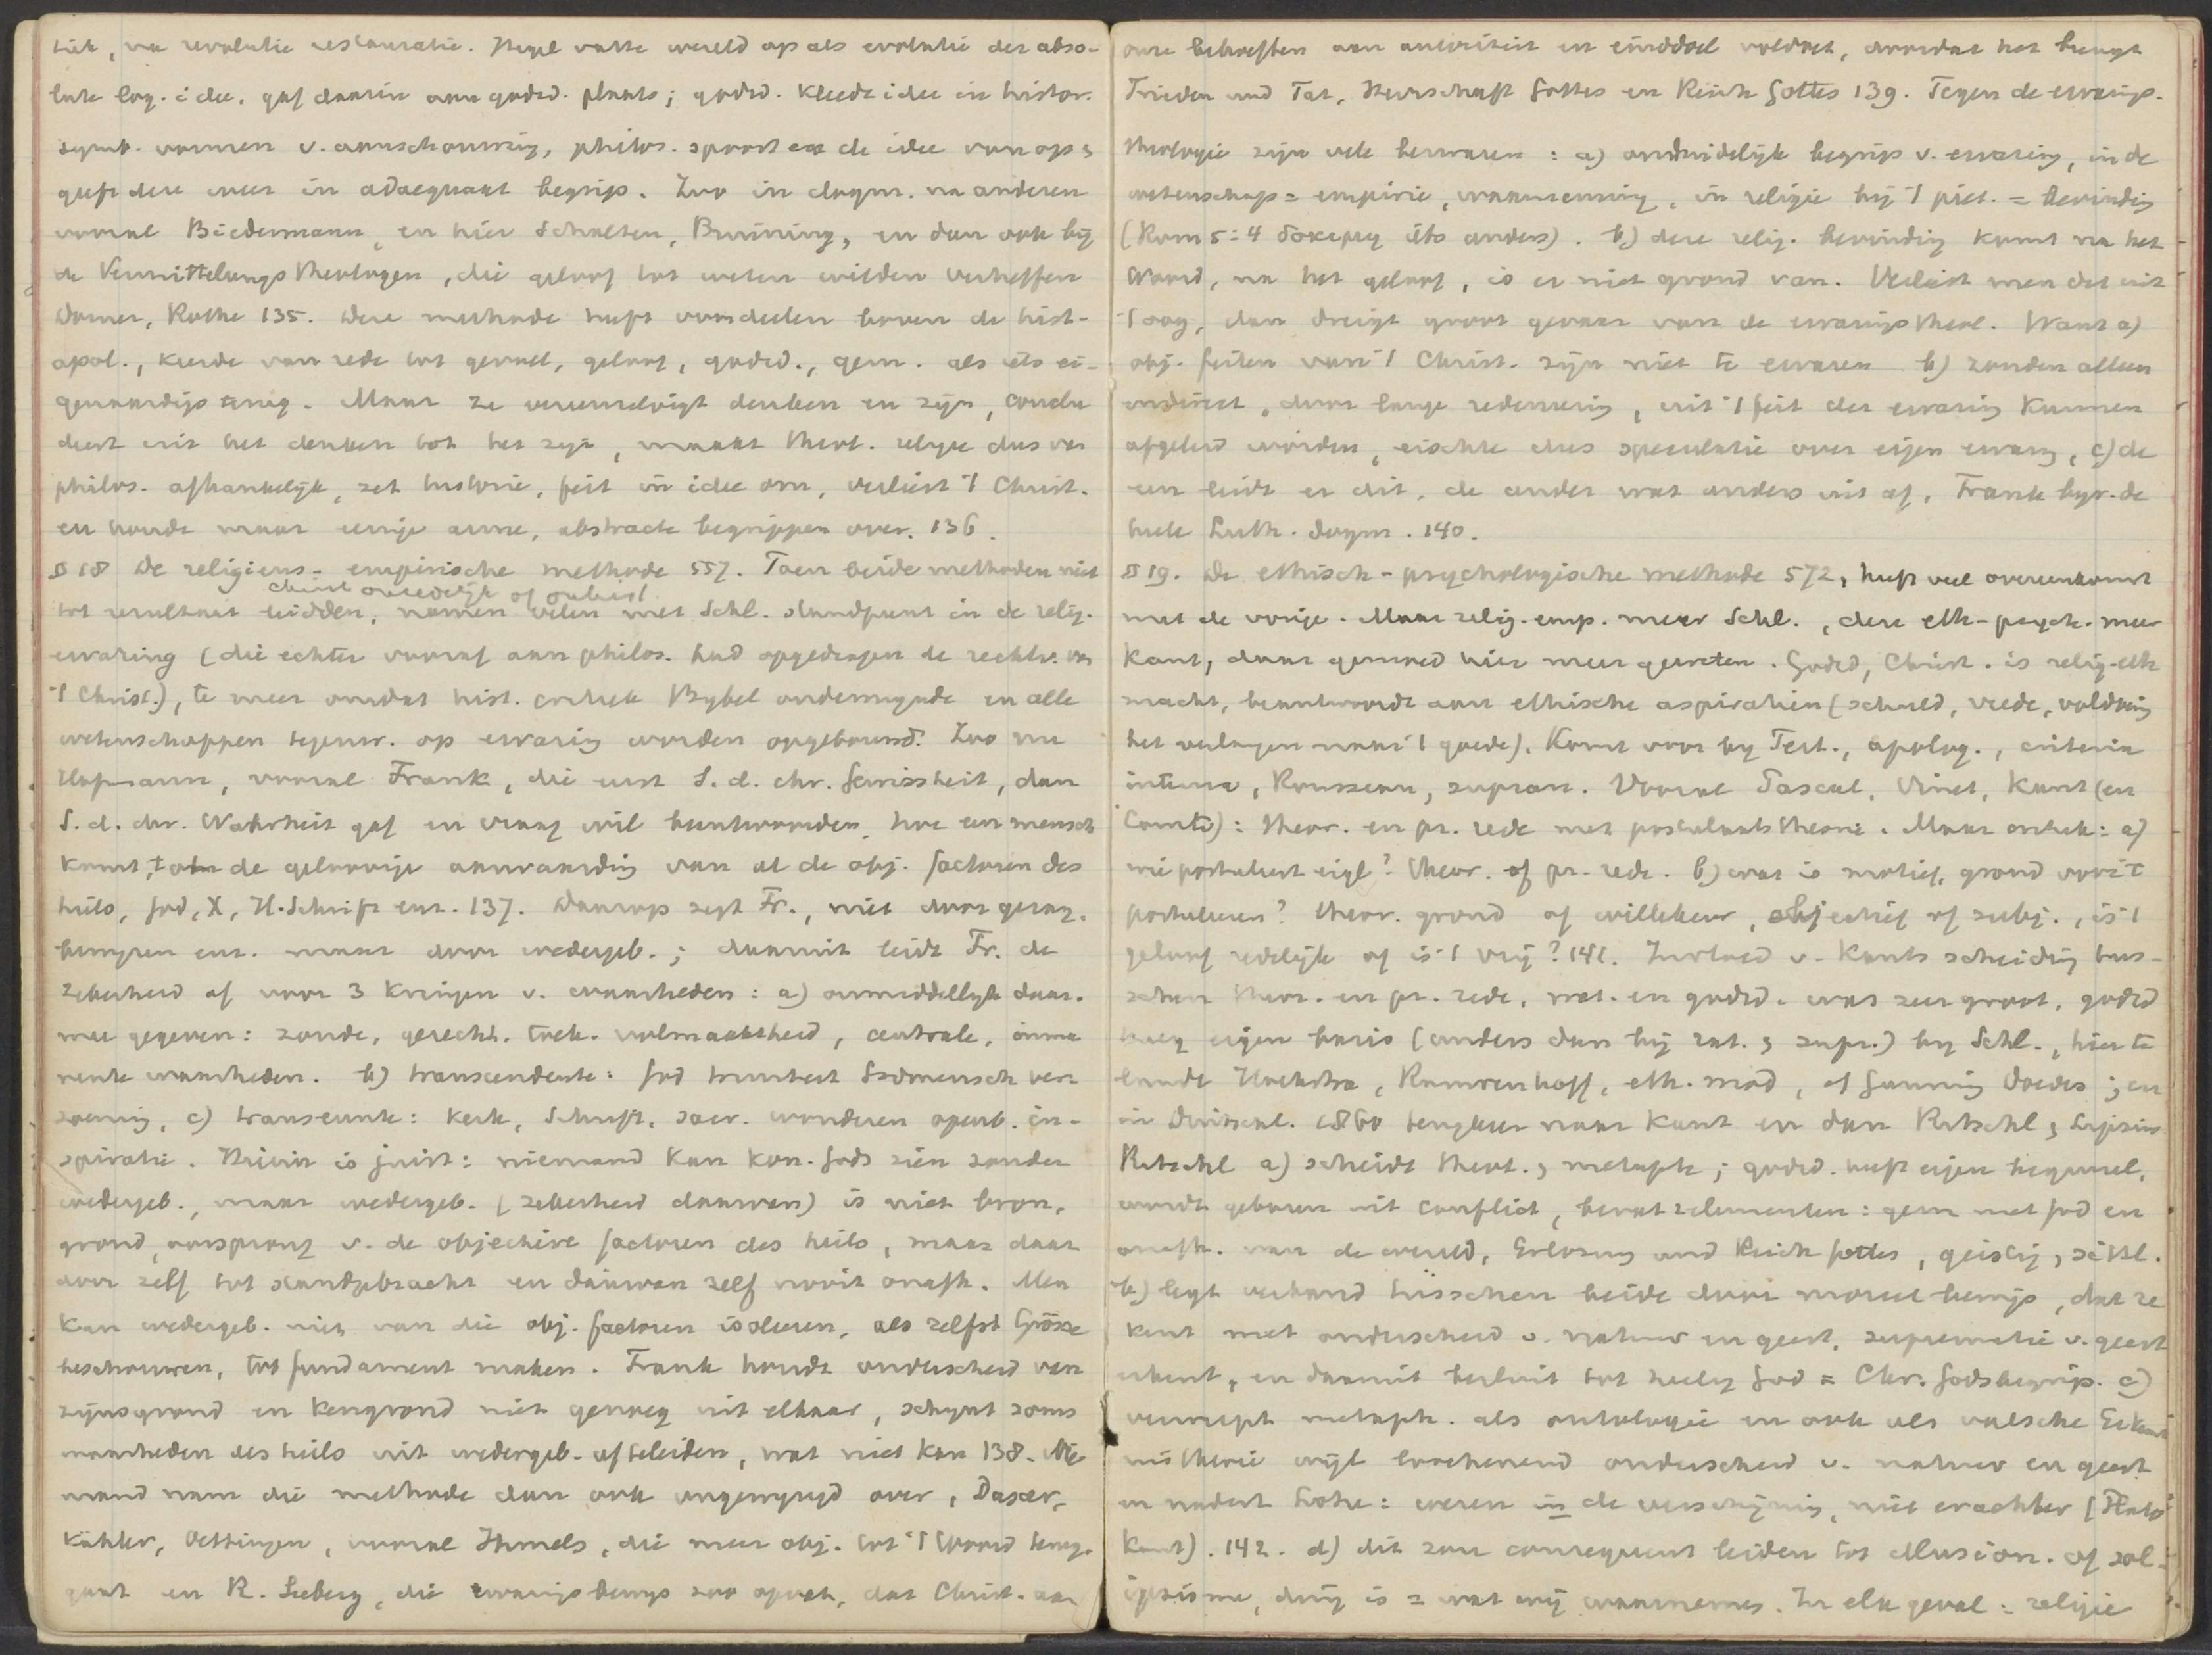 tiek, na revolutie restauratie. Hegel vatte wereld op als evolutie der abso-
lute log. idee, gaf daarin aan godsd. plaats; godsd. kleedt idee in histor.
symb. vormen v. aanschouwing, philos. spoort er de idee van op &
geeft deze weer in adaequaat begrip. Zoo in dogm. na anderen
vooral Biedermann, en hier Scholten, Bruining, en dan ook bij
de Vermittelungs Theologen, die geloof tot weten wilden verheffen
Dorner, Rothe 135. Deze methode heeft voordeelen boven de hist-
apol., keerde van rede tot gevoel, geloof, godsd., gem. als iets ei-
genaardigs terug. Maar ze vereenzelvigt denken en zijn, conclu
deert uit het denken tot het zijn, maakt theol. religie dus van
philos. afhankelijk, zet historie, feit in idee om, verliest 't Christ.
en houdt maar eenige arme, abstracte begrippen over. 136.
§ 18 De religieus-empirische methode 557. Toen beide methoden niet
tot resultaat leidden, namen velen met Schl. standpunt in de relig.
ervaring (die echter vooraf aan philos. had opgedragen de rechtv. van
't Christ.), te meer omdat hist. critiek Bybel ondermynde en alle
wetenschappen tegenw. op ervaring worden opgebouwd. Zoo nu
Hofmann, vooral Frank, die eerst S. d. chr. Gewissheit, dan
S. d. chr. Wahrheit gaf en vraag wil beantwoorden, hoe een mensch
komt, tot de geloovige aanvaarding van al de obj. factoren des
heils, God, X, H. Schrift enz. 137. Daarop zegt Fr., niet door gezag,
bewijzen enz. maar door wedergeb.; daaruit leidt Fr. de
zekerheid af voor 3 kringen v. waarheden: a) onmiddellijk daar-
mee gegeven: zonde, gerecht. toek. volmaaktheid, centrale, imma
nente waarheden. b) transcendente: God triniteit Godmensch ver
zoening, c) transeunte: Kerk, Schrift, sacr. wonderen openb. in-
spiratie. Hierin is juist: niemand kan kon. Gods zien zonder
wedergeb., maar wedergeb. (zekerheid daarvan) is niet bron,
grond, oorsprong v. de objectieve factoren des heils, maar daar
door zelf tot standgebracht en daarvan zelf nooit onafh. Men
kan wedergeb. niet van die obj. factoren isoleeren, als zelfst Grösse
beschouwen, tot fundament maken. Frank houdt onderscheid van
zijnsgrond en kengrond niet genoeg uit elkaar, schynt soms
waarheden des heils uit wedergeb. afteleiden, wat niet kan 138. Nie
mand nam die methode dan ook ongewyzigd over,
Kähler, Oettingen, vooral Ihmels, die meer obj. tot 't Woord terug-
gaat en R. Seeberg, die ervaringsbewys zoo opvat, dat Christ. aan
onze behoeften aan autoriteit en einddoel voldoet, doordat het brengt
Frieden und Tat, Herrschaft Gottes en Reich Gottes 139. Tegen de ervarings-
theologie zijn vele bezwaren: a) onduidelijk begrip v. ervaring, in de
wetenschap = empirie, waarneming, in religie bij 't piet. = bevinding
(Rom 5:4 iets anders). b) deze relig. bevinding komt na het
Woord, na het geloof, is er niet grond van. Verliest men dit uit
't oog, dan dreigt groot gevaar van de ervarings theol. Want a)
obj. feiten van 't Christ. zijn niet te ervaren b) zouden alleen
indirect, door lange redeneering, uit 't feit der ervaring kunnen
afgeleid worden, eischte dus speculatie over eigen ervaring, c) de
een leidt er dit, de ander wat anders uit af, Frank byv. de
heele Luth. dogm. 140.
§ 19. De ethisch-psychologische methode 572, heeft veel overeenkomst
met de vorige. Maar relig. emp. meer Schl., deze eth-psych. meer
Kant, daar gemoed hier meer geweten. Godsd, Christ. is relig-eth
macht, beantwoordt aan ethische aspiratien (schuld, vrede, voldoening
het verlangen naar 't goede). Komt voor by Tert., apolog., criteria
interna, Rousseau, supran. Vooral Pascal, Vinet, Kant (en
Comte): theor. en pr. rede met postulaats theorie. Maar critiek: a)
wie postuleert eigl? theor. of pr. rede. b) wat is motief, grond voor 't
postuleeren? theor. grond of willekeur, objectief of subj., is 't
geloof redelijk of is 't vrij? 141. Invloed v. Kants scheiding tus-
schen theor. en pr. rede, wet. en godsd. was zeer groot, godsd
kreeg eigen basis (anders dan bij rat. & supr.) by Schl., hier te
lande Hoekstra, Rauwenhoff, eth. mod, of Gunning Doedes; en
in Duitschl. 1860 terugkeer naar Kant en dan Ritschl, Lipsius
Ritschl a) scheidt theol. & metaph; godsd. heeft eigen beginsel,
wordt geboren uit conflict, bevat 2 elementen: gem met God en
onafh. van de wereld, Erlösung und Reich Gottes, geistig, sittl.
b) legt verband tusschen beide door moreel bewijs, dat ze
kent met onderscheid v. natuur en geest, suprematie v. geest
erkent, en daaruit besluit tot heilig God = Chr. Godsbegrip. c)
verwerpt metaph. als ontologie en ook als valsche Erkennt
nis theorie wijl loochenend onderscheid v. natuur en geest
en nadert Lotze: weten in de verschijning, niet erachter (Plato
Kant). 142. d) dit zou consequent leiden tot illusion. of sol-
ipsisme, ding is = wat wij waarnemen. In elk geval: religie